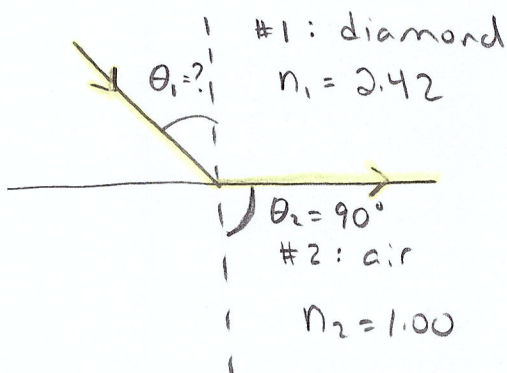 #1 : diamond
θ₁=?
n₁ = 2.42
θ₂ = 90°
#2 : air
n₂ = 1.00